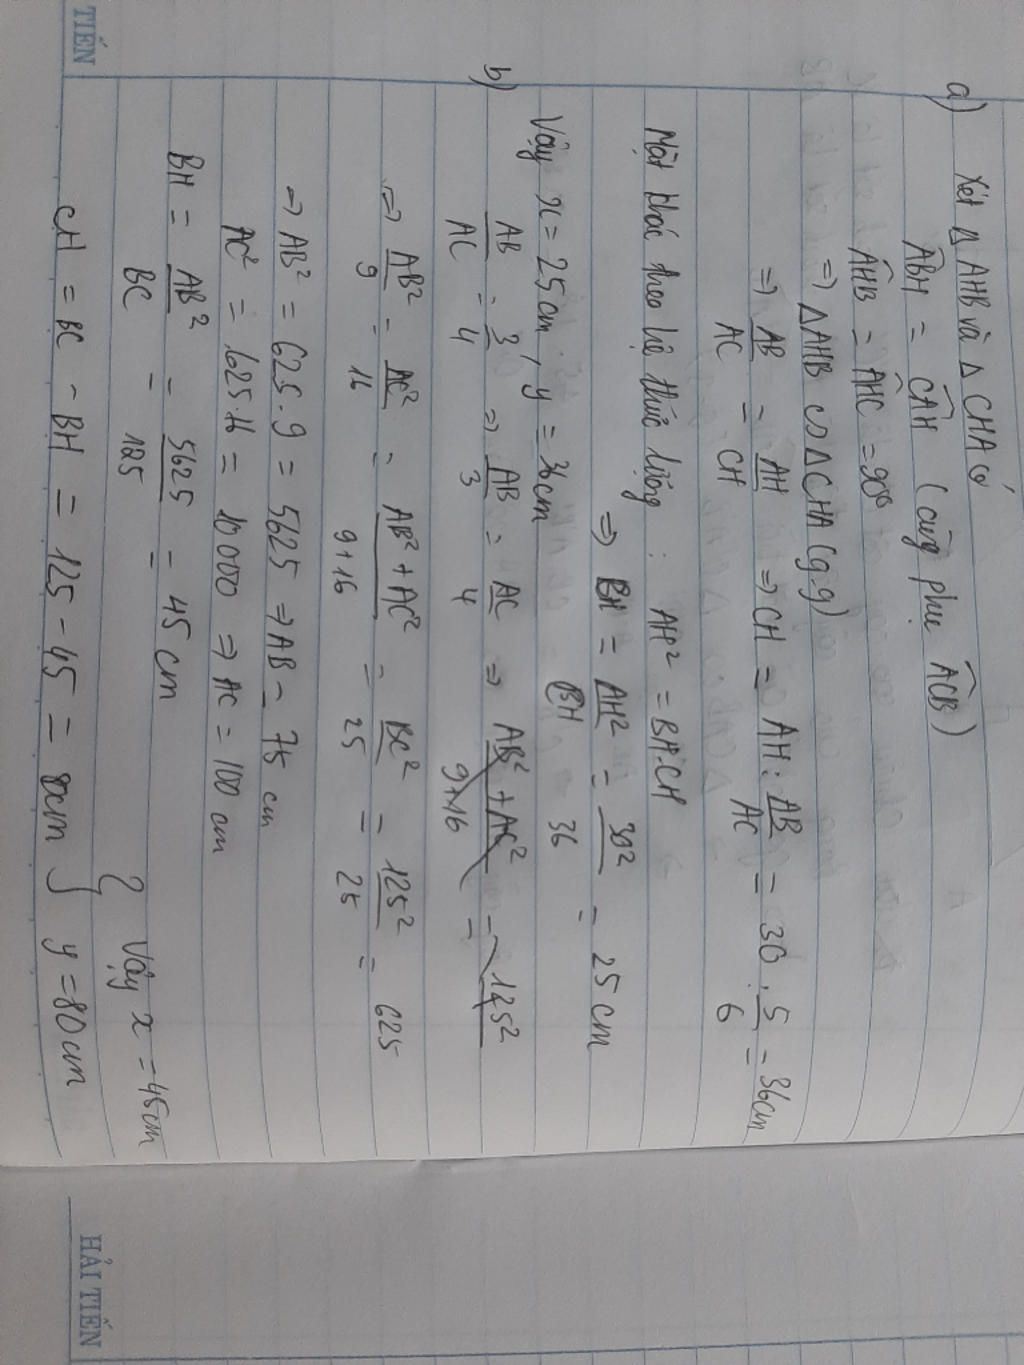 a) Xét Δ AHB và Δ CHA có
ABH = CAH (cùng phụ ACB)
AHB = AHC = 90°
⇒ ΔAHB ∽ ΔCHA (g.g)
⇒ AB/AC = AH/CH ⇒ CH = AH : AB/AC = 30 : 5/6 = 36cm
Mặt khác theo hệ thức lượng : AH² = BH.CH
⇒ BH = AH²/BH = 30²/36 = 25cm
Vậy x = 25cm, y = 36cm
b) AB/AC = 3/4 ⇒ AB/3 = AC/4 ⇒ AB² + AC²/9+16 = 125²
⇒ AB²/9 = AC²/16 = AB² + AC²/9+16 = BC²/25 = 125²/25 = 625
⇒ AB² = 625.9 = 5625 ⇒ AB = 75 cm
AC² = 625.16 = 10000 ⇒ AC = 100 cm
BH = AB²/BC = 5625/125 = 45 cm
CH = BC - BH = 125 - 45 = 80cm
Vậy x = 45cm
y = 80cm
TIẾN
HẢI TIẾN